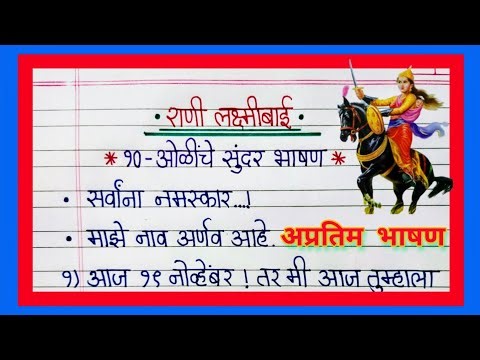 • राणी लक्ष्मीबाई •
* १०-ओळींचे सुंदर भाषण *
• सर्वांना नमस्कार...!
• माझे नाव अर्णव आहे. अप्रतिम भाषण
१) आज १९ नोव्हेंबर ! तर मी आज तुम्हाला